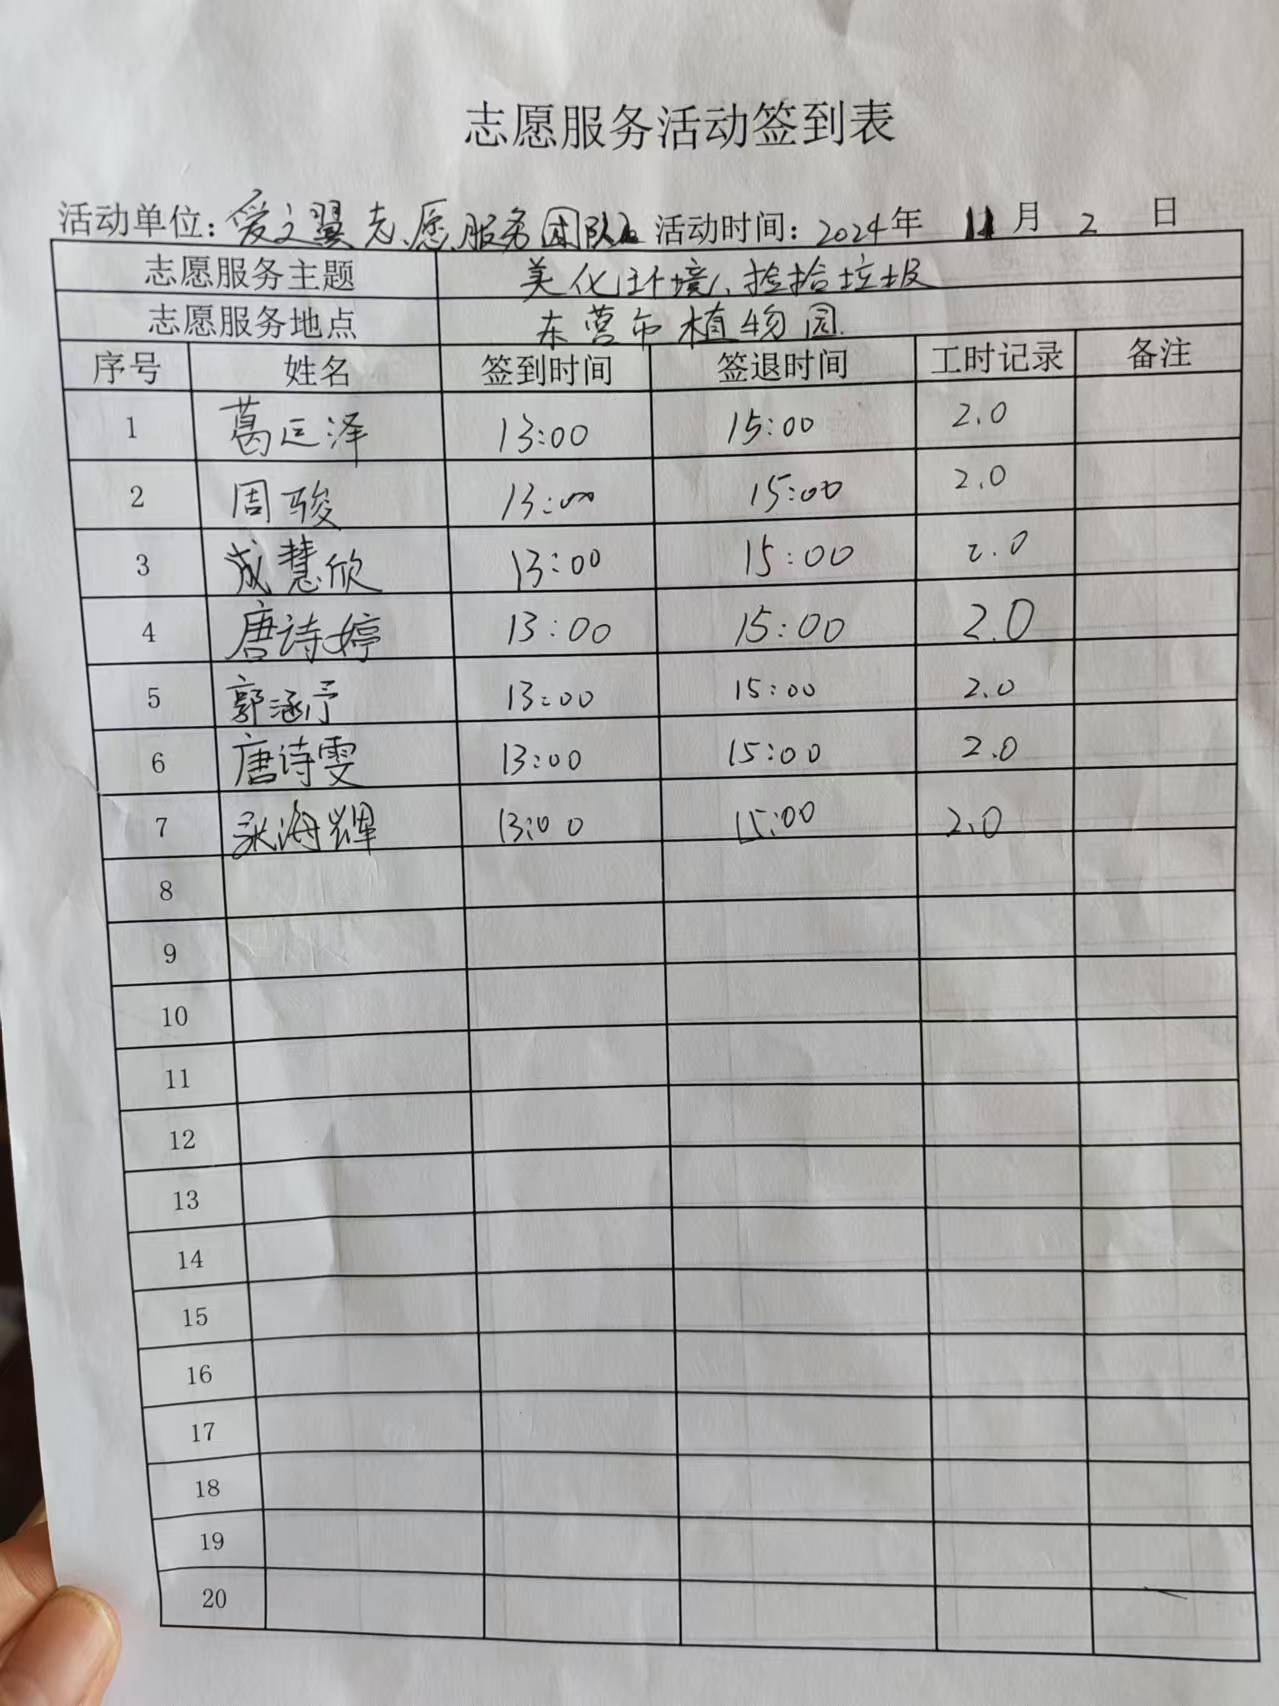 志愿服务活动签到表
活动单位：爱之翼志愿服务团队 活动时间：2024年 11月 2 日
志愿服务主题 美化环境、捡拾垃圾
志愿服务地点 东营市植物园
序号 姓名 签到时间 签退时间 工时记录 备注
1 葛运泽 13:00 15:00 2.0
2 周骏 13:00 15:00 2.0
3 成慧欣 13:00 15:00 2.0
4 唐诗婷 13:00 15:00 2.0
5 郭涵予 13:00 15:00 2.0
6 唐诗雯 13:00 15:00 2.0
7 海辉 13:00 15:00 2.0
8
9
10
11
12
13
14
15
16
17
18
19
20